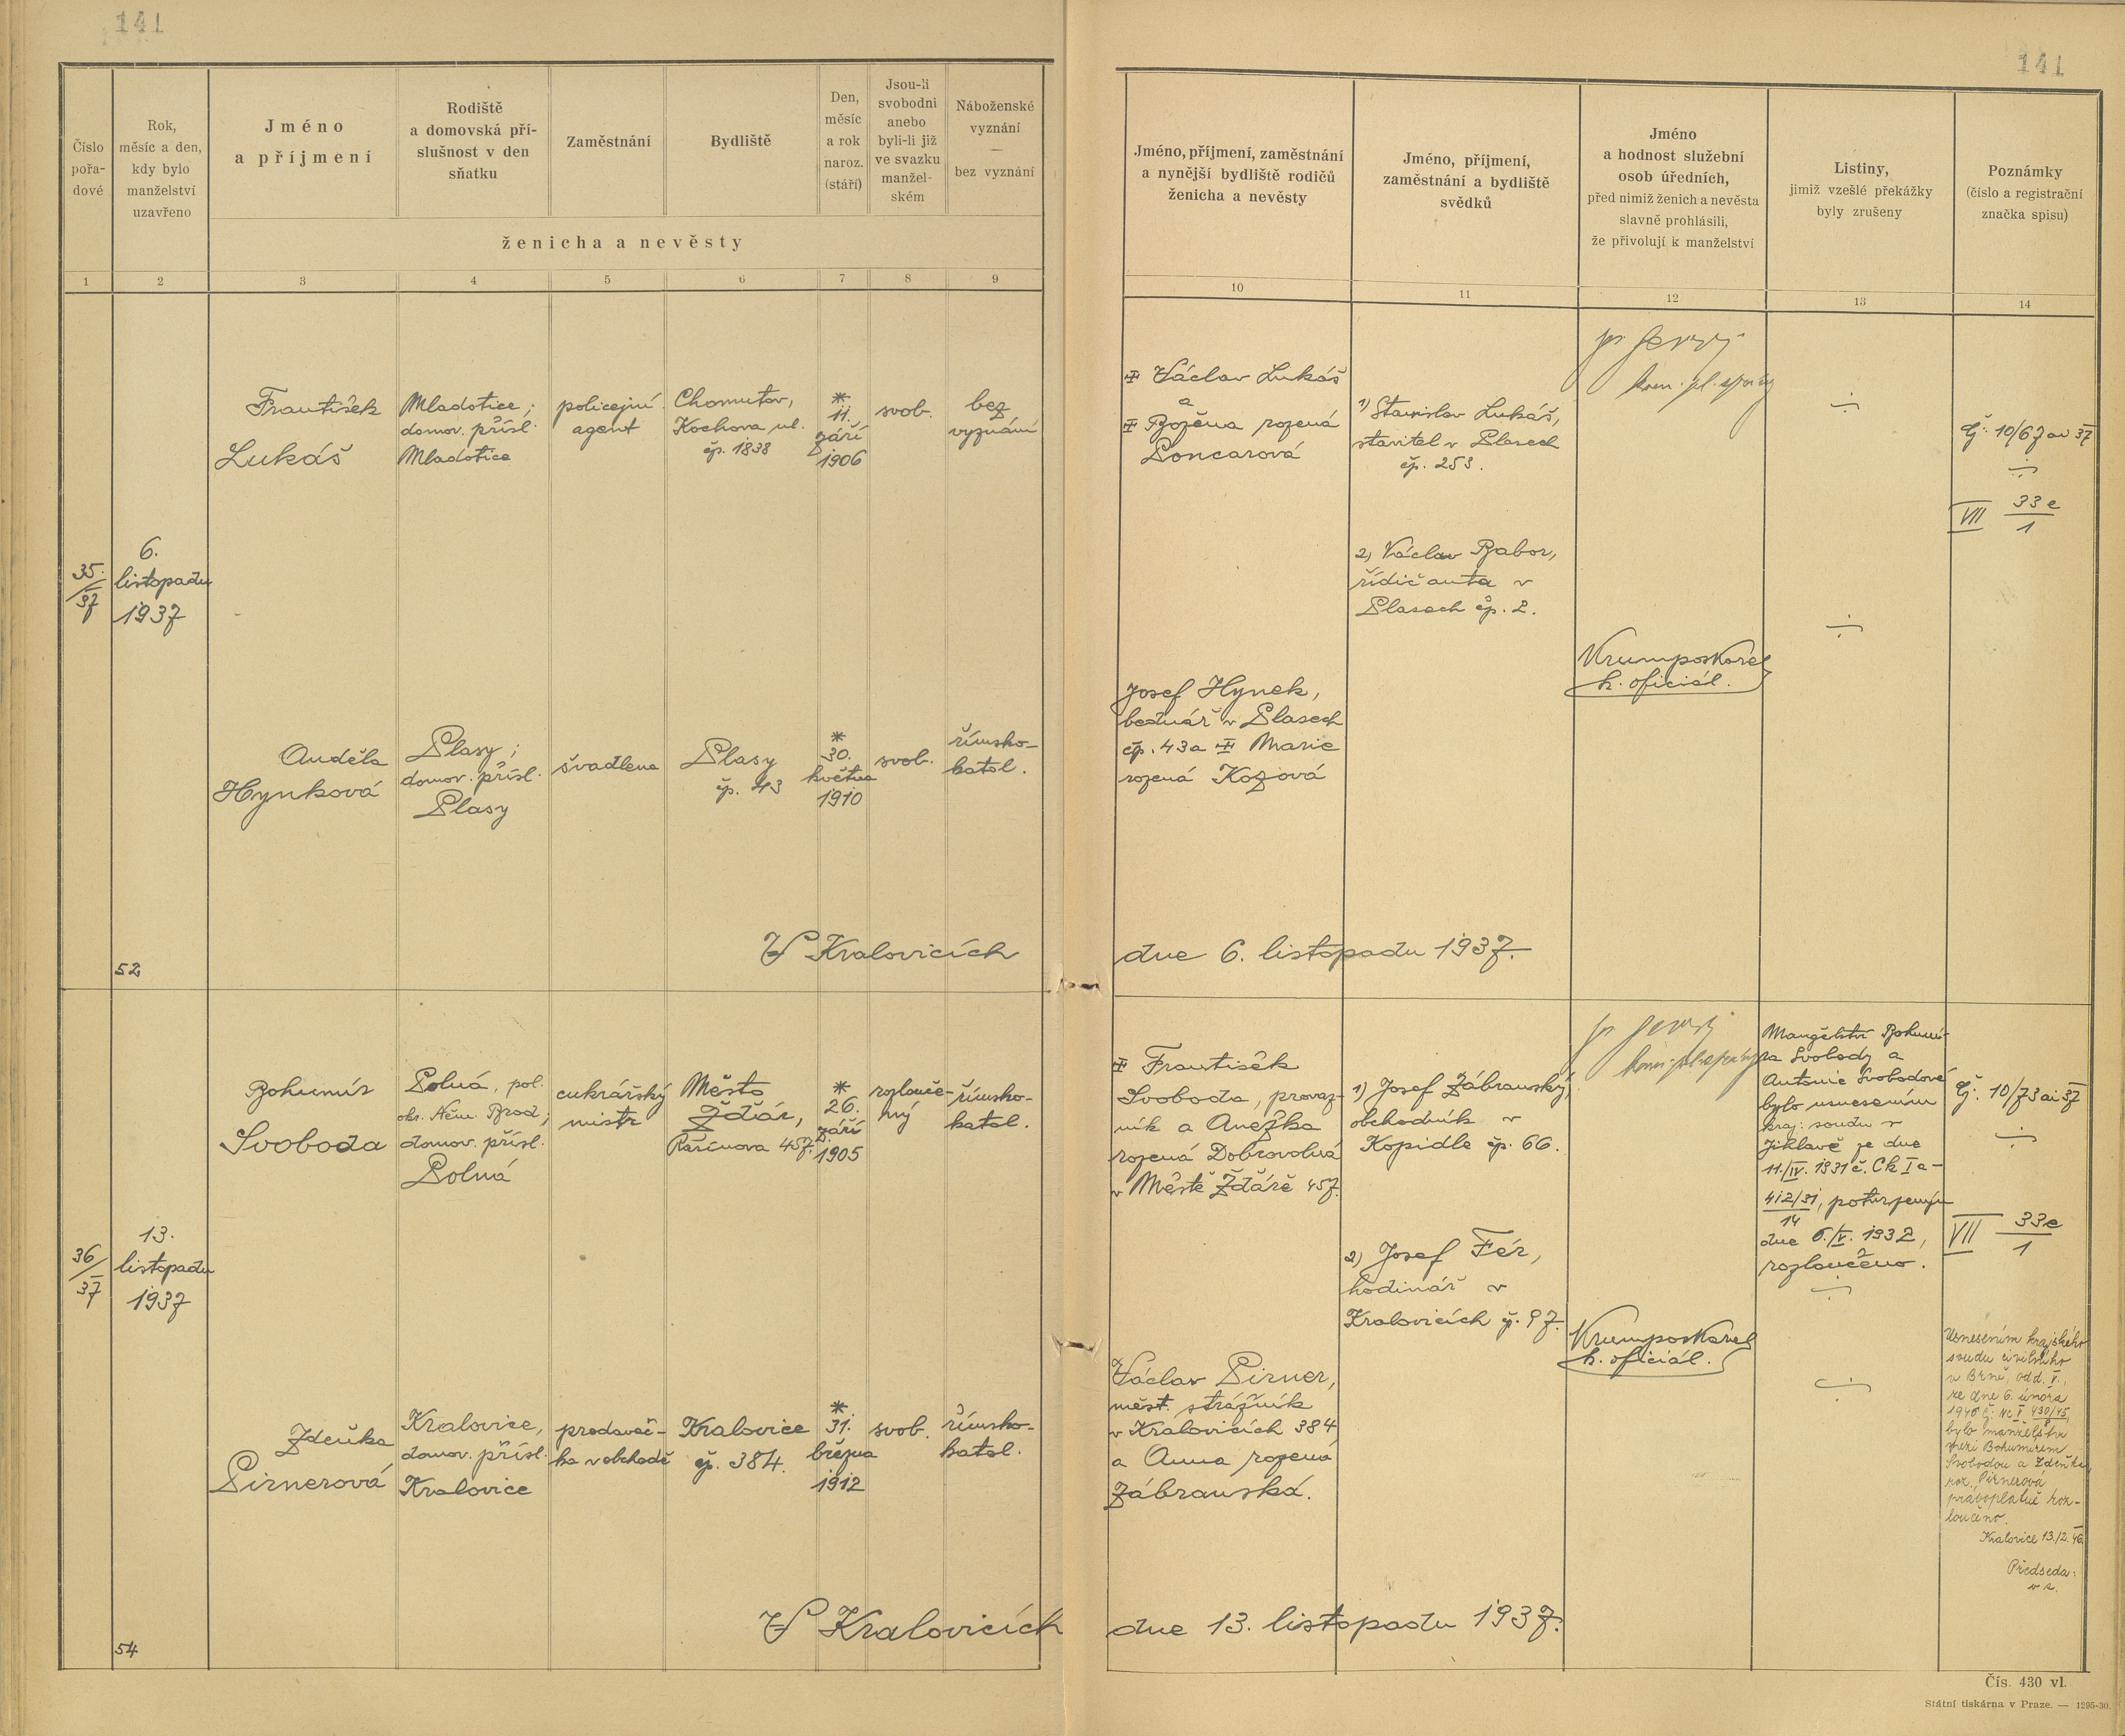 141
141
Číslo
pořa-
dové
Rok,
měsíc a den,
kdy bylo
manželství
uzavřeno
Jméno
a příjmení
Rodiště
a domovská pří-
slušnost v den
sňatku
Zaměstnání
Bydliště
Den,
měsíc
a rok
naroz.
(stáří)
Jsou-li
svobodni
anebo
byli-li již
ve svazku
manžel-
ském
Náboženské
vyznání
—
bez vyznání
ženicha a nevěsty
Jméno, příjmení, zaměstnání
a nynější bydliště rodičů
ženicha a nevěsty
Jméno, příjmení,
zaměstnání a bydliště
svědků
Jméno
a hodnost služební
osob úředních,
před nimiž ženich a nevěsta
slavně prohlásili,
že přivolují k manželství
Listiny,
jimiž vzešlé překážky
byly zrušeny
Poznámky
(číslo a registrační
značka spisu)
1 2 3 4 5 6 7 8 9
10 11 12 13 14
35.
/37
6.
listopadu
1937
František
Lukáš
Mladotice;
domov. přísl.
Mladotice
policejní
agent
Chomutov,
Kochova ul.
čp. 1838
*
11.
září
1906
svob.
bez
vyznání
Anděla
Hynková
Plasy;
domov. přísl.
Plasy
švadlena
Plasy
čp. 43
*
30.
května
1910
svob.
římsko-
katol.
Václav Lukáš
a
Božena rozená
Poncarová
Josef Hynek,
bednář v Plasech
čp. 43 a Marie
rozená Kozová
1) Stanislav Lukáš,
stavitel v Plasech
čp. 253.
2) Václav Babor,
řidič auta v
Plasech čp. 2.
Krumpos Karel
k. oficiál.
Čj: 10/67 ai 37
VII 33e
1
52
V Kralovicích
dne 6. listopadu 1937.
36
/37
13.
listopadu
1937
Bohumír
Svoboda
Polná, pol.
okr. Něm. Brod;
domov. přísl.
Polná
cukrářský
mistr
Město
Žďár,
Rašínova 457.
*
26.
září
1905
rozlouče-
ný
římsko-
katol.
Zdeňka
Pirnerová
Kralovice,
domov. přísl.
Kralovice
prodavač-
ka v obchodě
Kralovice
čp. 384.
*
31.
března
1912
svob.
římsko-
katol.
František
Svoboda, provaz-
ník a Anežka
rozená Dobrovolná
v Městě Žďáře 457.
Václav Pirner,
měst. strážník
v Kralovicích 384
a Anna rozená
Zábranská.
1) Josef Zábranský,
obchodník v
Kopidle čp. 66.
2) Josef Fér,
hodinář v
Kralovicích čp. 97.
Krumpos Karel
k. oficiál.
Manželství Bohumí-
ra Svobody a
Antonie Svobodové
bylo usnesením
kraj. soudu v
Jihlavě ze dne
11./IV. 1931 č. Ck Ia-
412/31, potvrzeným
14
dne 6./V. 1932,
rozloučeno.
Čj: 10/73 ai 37
VII 33e
1
Usnesením krajského
soudu civilního
v Brně, odd. V.,
ze dne 6. února
1946 č. Nc V 430/45
8
bylo manželství
mezi Bohumírem
Svobodou a Zdeňkou
roz. Pirnerová
právoplatně roz-
loučeno.
Kralovice 13./2. 46
Předseda:
v z.
54
V Kralovicích
dne 13. listopadu 1937.
Čís. 430 vl.
Státní tiskárna v Praze. — 1295-30.